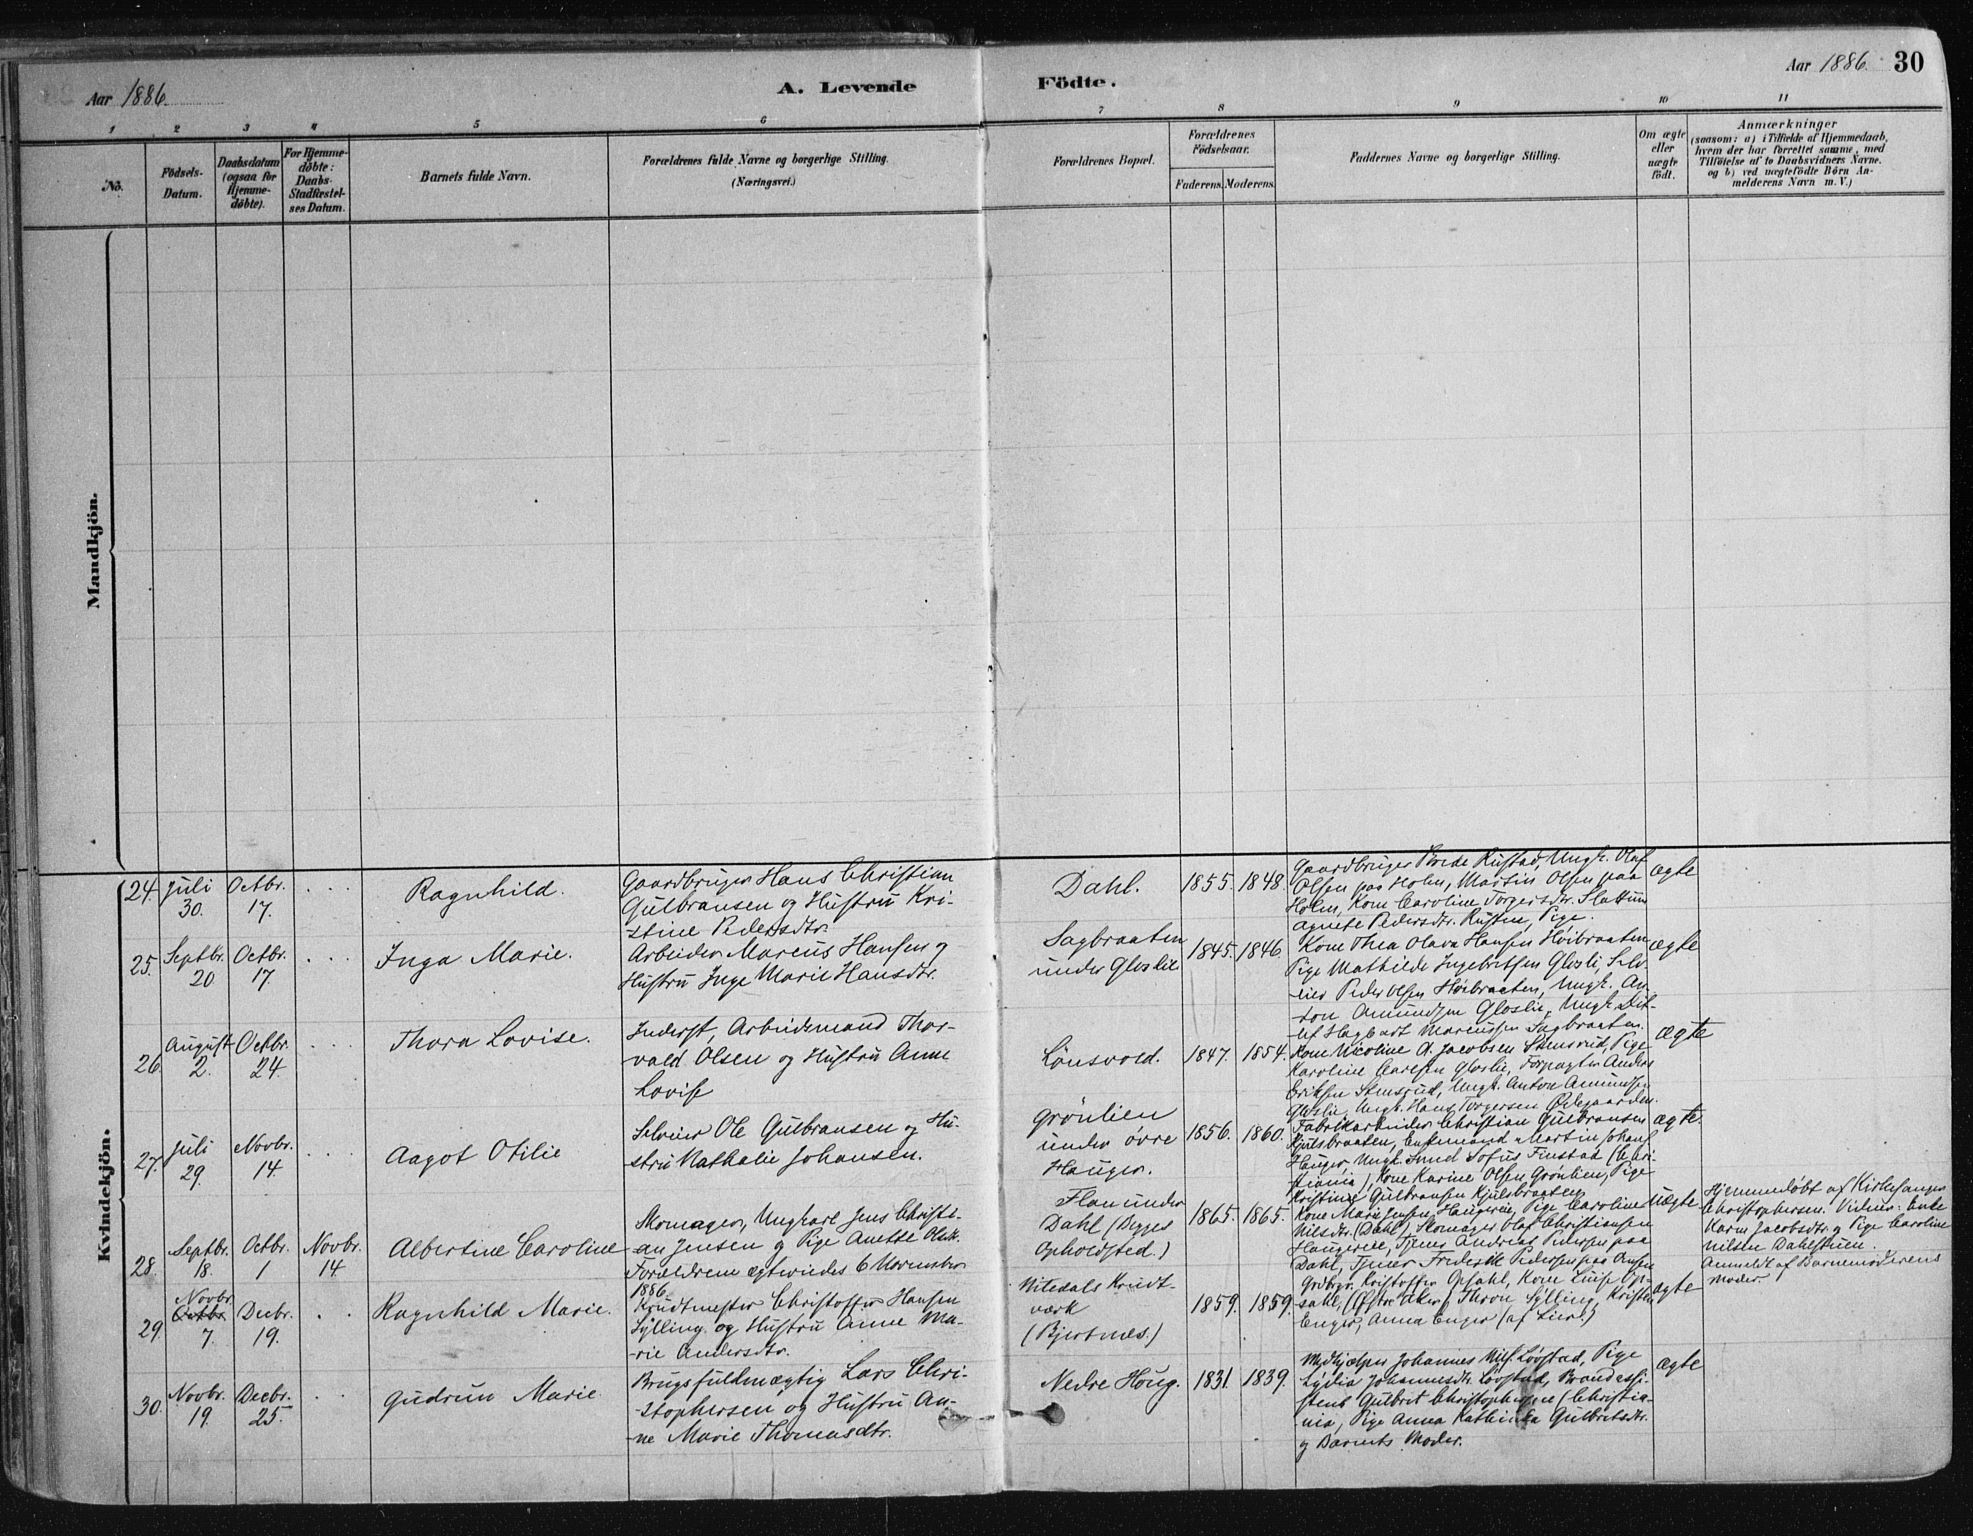 Aar 1886.
A. Levende Födte.
Aar 1886. 30
1 2 3 4 5 6 7 8 9 10 11
No.
Födsels-Datum.
Daabsdatum (ogsaa for Hjemme-döbte).
For Hjemme-döbte: Daabs-Stadfæstel-ses Datum.
Barnets fulde Navn.
Forældrenes fulde Navne og borgerlige Stilling.
(Næringsvei.)
Forældrenes Bopæl.
Forældrenes Födselsaar.
Faderens. Moderens.
Faddernes Navne og borgerlige Stilling.
Om ægte eller uægte födt.
Anmærkninger
(saasom: a) i Tilfælde af Hjemmedaab,
hvem der har forrettet samme, med
Tilföielse af to Daabsvidners Navne.
og b) ved uægtefödte Börn An-
melderens Navn m. V.)
Mandkjön.
Kvindekjön.
24. Juli 30. Octbr. 17. . . . Ragnhild.
Gaardbruger Hans Christian
Gulbransen og Hustru Kri-
stine Pedersdtr.
Dahl. 1855. 1848.
Gaardbruger Brede Rustad, Ungk. Olaf
Olsen paa Holm, Martin Olsen paa
Holm, Kone Caroline Torgersdtr. Slattum
Agnete Pedersdtr. Rusten, Pige.
ægte
25. Septbr. 20 Octbr. 17. . . . Inga Marie.
Arbeider Marcus Hansen og
Hustru Inge Marie Hansdtr.
Sagbraaten
under Gloslie
1845. 1846.
Kone Thea Olava Hansen Höibraaten
Pige Mathilde Ingebritsen Glosli, Selv-
eier Peder Olsen Höibraaten, Ungk. An-
ton Amundsen Gloslie, Ungk. Det-
lef Hagbart Marcussen Sagbraaten.
ægte
26. August 2. Octbr. 24. . . . Thora Lovise.
Inderst, Arbeidsmand Thor-
vald Olsen og Hustru Anne
Lovise
Lönsvold. 1847. 1854.
Kone Nicoline A. Jacobsen Stensrud, Pige
Karoline Carlsen Gloslie, Forpagter Anders
Eriksen Stensrud, Ungk. Anton Amundsen
Gloslie, Ungk. Hans Torgersen Ödegaarden.
ægte
27. Juli 29. Novbr. 14. . . . Aagot Otilie
Selveier Ole Gulbransen og Hu-
stru Nathalie Johansen.
Grönlien
under övre
Hauger.
1856. 1860.
Fabrikarbeider Christian Gulbransen
Kjulsbraaten, Enkemand Martin Johans.
Hauger, Ungk. Sofus Finstad (Chri-
stiania), Kone Karine Olsen Grönlien, Pige
Kristine Gulbransen Kjulsbraaten
ægte.
28. Septbr. 18. Octbr. 1 Novbr. 14. Albertine Caroline
Skomager, Ungkarl Jens Christi-
an Jensen og Pige Anette Olsdtr.
Forældrene ægteviedes 6 November
1886
Flan under
Dahl (Begges
Opholdsted.)
1865. 1865.
Kone Marie Jensen Haugereie, Pige Caroline
Nilsdtr. (Dahl), Skomager Olaf Christiansen
Haugereie, Tjener Andreas Pedersen paa
Dahl, Tjener Frederik Pedersen paa
uægte
Hjemmedöbt af Kirkesanger
Christophersen. Vidner: Enke
Karen Jacobsdtr. og Pige Caroline
Nilsen Dahlstuen.
Anmeldt af Barnemoderens
Moder.
29. Novbr. Octbr. 7. Decbr. 19. Ragnhild Marie.
Krudtmester Christoffer Hansen
Sylling og Hustru Anne Ma-
rie Andersdtr.
Nitedals Krudt-
værk
(Bjertnes.)
1859. 1859.
Grdbgr. Kristoffer Opsahl, Kone Luise Op-
sahl, (Östre Aker) Thron Sylling, Kristen
Enger, Anna Enger (af Lier.)
ægte
30. Novbr. 19. Decbr. 25. . . Gudrun Marie
Brugsfuldmægtig Lars Chri-
stophersen og Hustru An-
ne Marie Thomasdtr.
Nedre Houg. 1831. 1839.
Medhjælper Johannes Nils. Lövstad, Pige
Lydia Johannesdtr. Lövstad, Brandassi-
stent Gulbret Christophersen (Christia-
nia), Pige Anna Kathinka Gulbretsdtr.
og Barnets Moder.
ægte